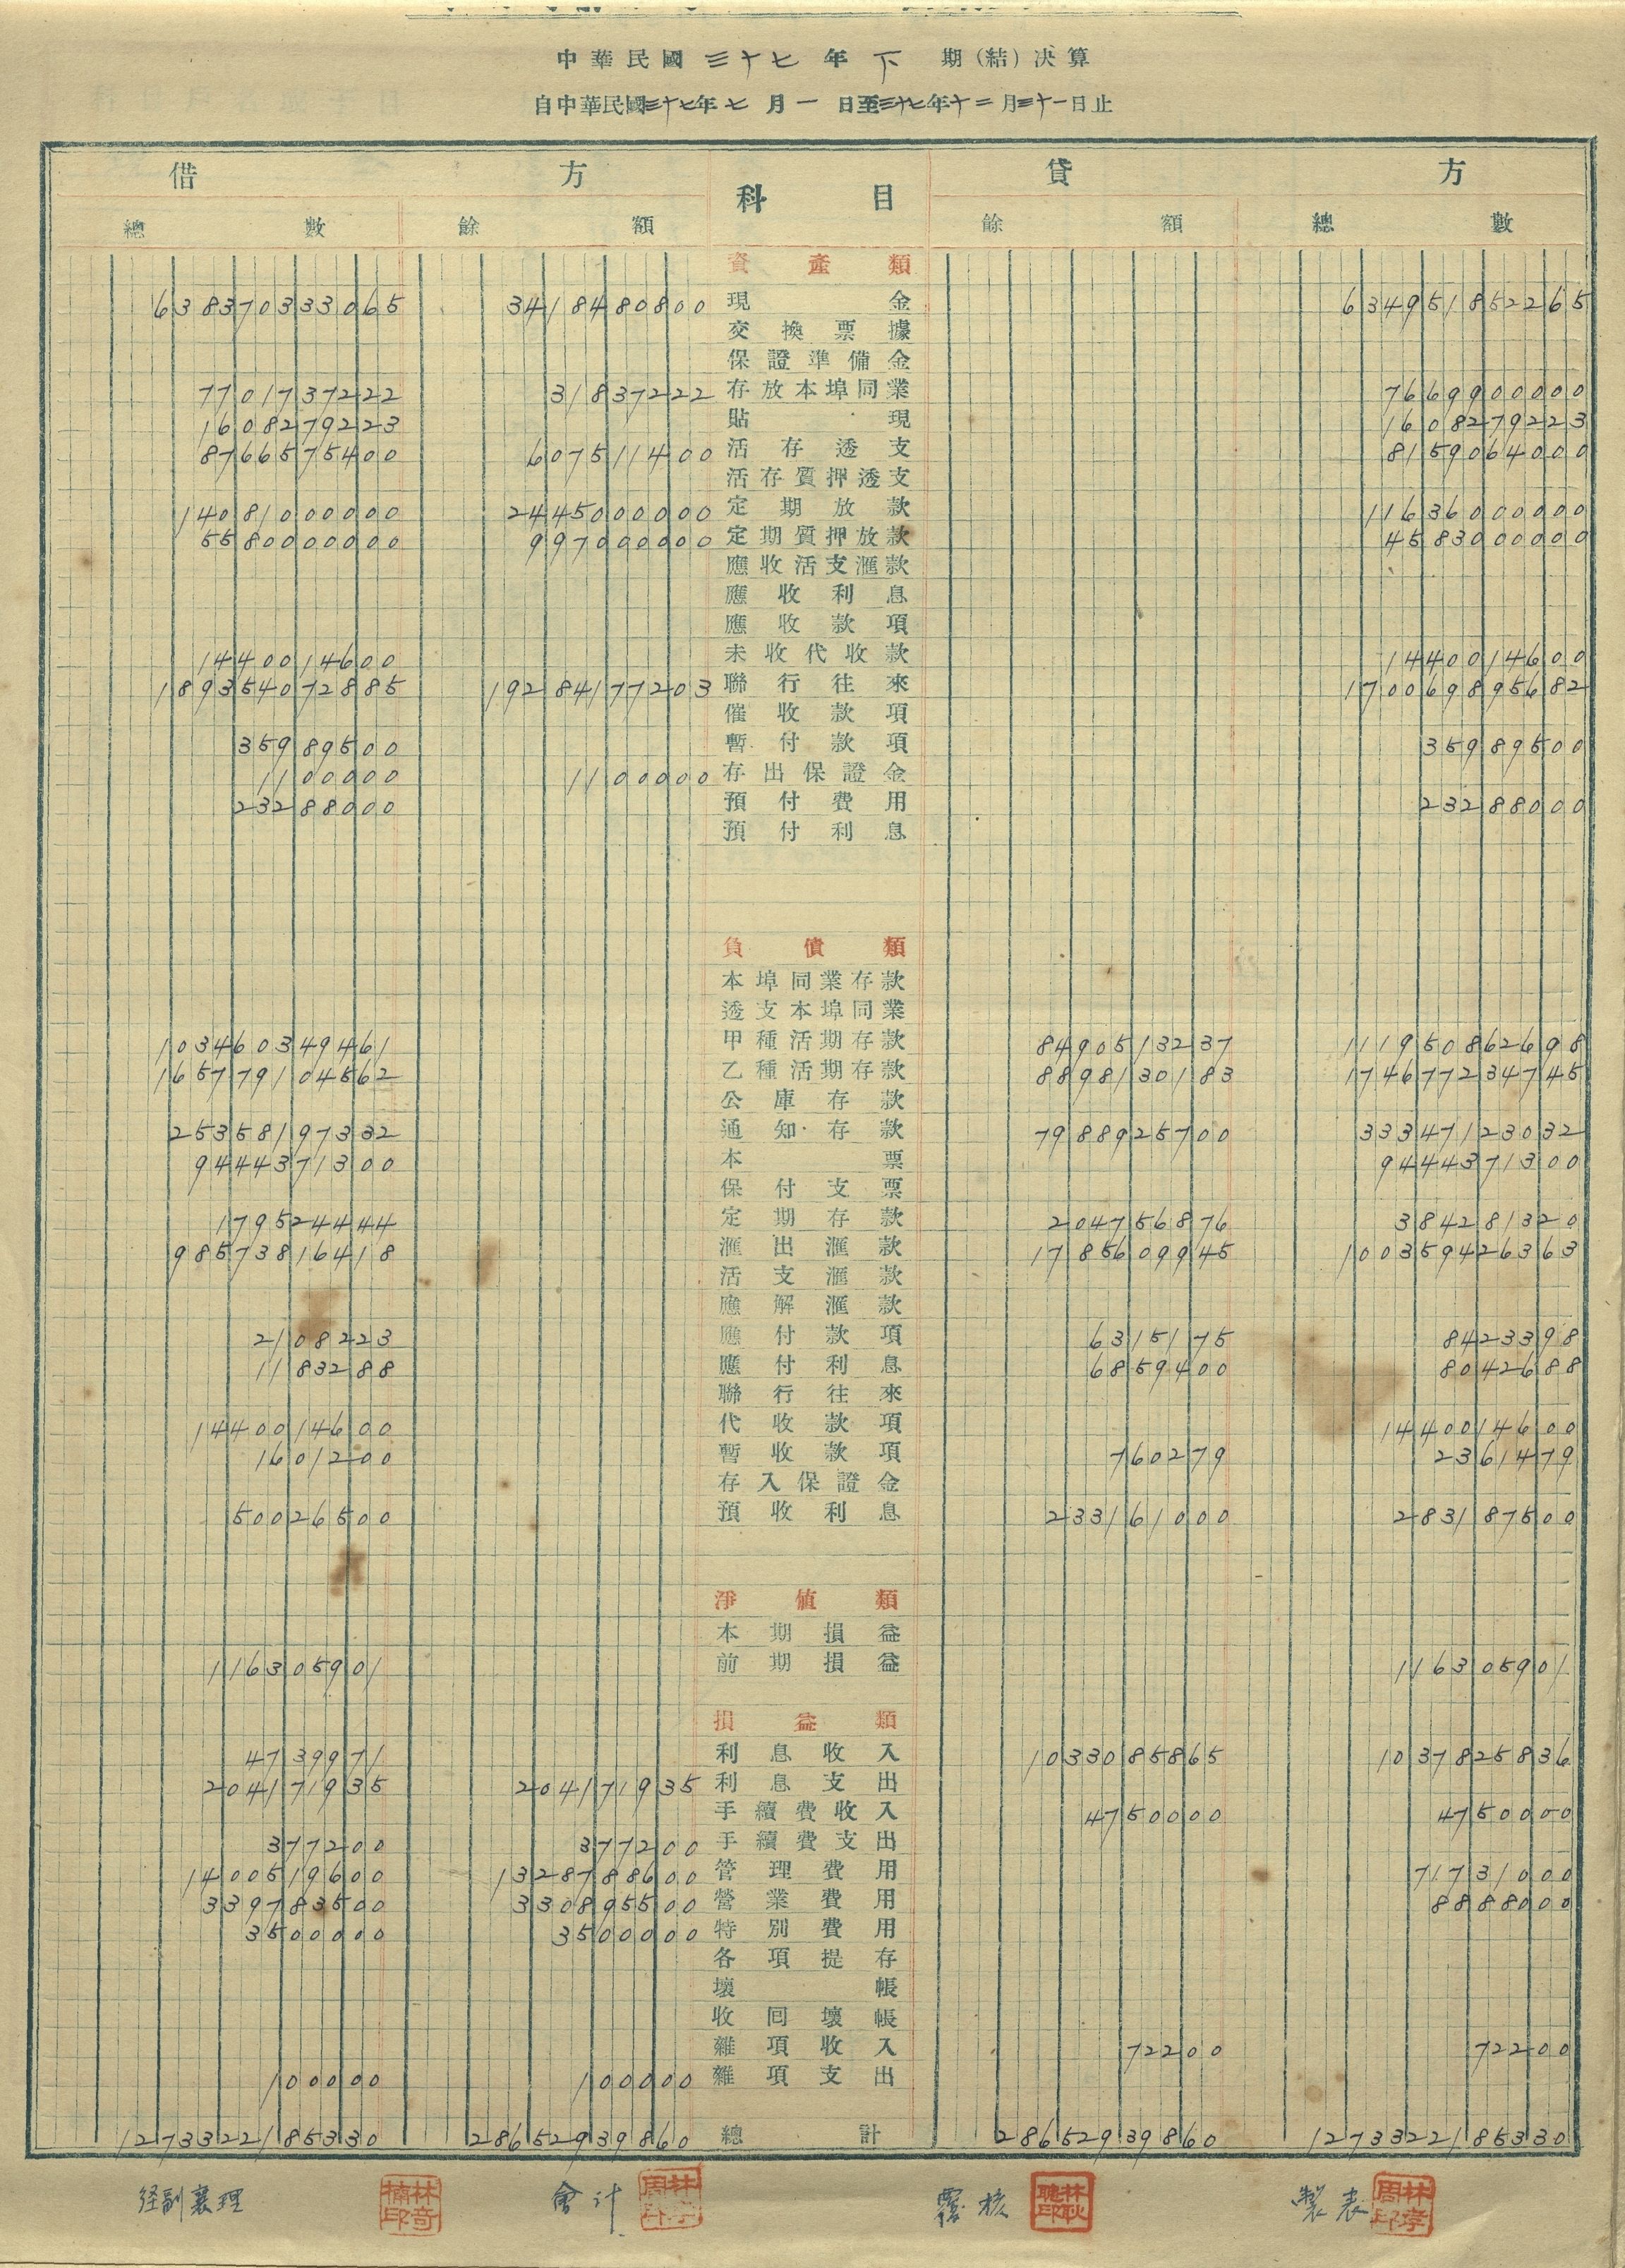 中華民國三十七年下期(結)决算
自中華民國三十七年七月一日至三十七年十二月三十一日止
借方 科目 貸方
總數 餘額 餘額 總數
資產類
638370333065 3418480800 現金 634951852265
交換票據
保證準備金
7701737222 31837222 存放本埠同業 7669900000
1608279223 貼現 1608279223
8766575400 607511400 活存透支 8159064000
活存質押透支
14081000000 2445000000 定期放款 11636000000
5580000000 997000000 定期質押放款 4583000000
應收活支滙款
應收利息
應收款項
1440014600 未收代收款 1440014600
189354072885 19284177203 聯行往來 170069895682
催收款項
35989500 暫付款項 35989500
1100000 1100000 存出保證金
23288000 預付費用 23288000
預付利息
負債類
本埠同業存款
透支本埠同業
103460349461 甲種活期存款 8490513237 111950862698
165779104562 乙種活期存款 8898130183 174677234745
公庫存款
25358197332 通知存款 7988925700 33347123032
9444371300 本票 9444371300
保付支票
179524444 定期存款 204756876 384281320
98573816418 滙出滙款 1785609945 100359426363
活支滙款
應解滙款
2108223 應付款項 6315175 8423398
1183288 應付利息 6859400 8042688
聯行往來
1440014600 代收款項 1440014600
1601200 暫收款項 760279 2361479
存入保證金
50026500 預收利息 233161000 283187500
淨值類
本期損益
116305901 前期損益 116305901
損益類
4739971 利息收入 1033085865 1037825836
204171935 204171935 利息支出
手續費收入 4750000 4750000
377200 377200 手續費支出
1400519600 1328788600 管理費用 71731000
339783500 330895500 營業費用 8888000
3500000 3500000 特別費用
各項提存
壞帳
收回壞帳
雜項收入 72200 72200
100000 100000 雜項支出
1273322185330 28652939860 總計 28652939860 1273322185330
経副襄理 會計 覆核 製表